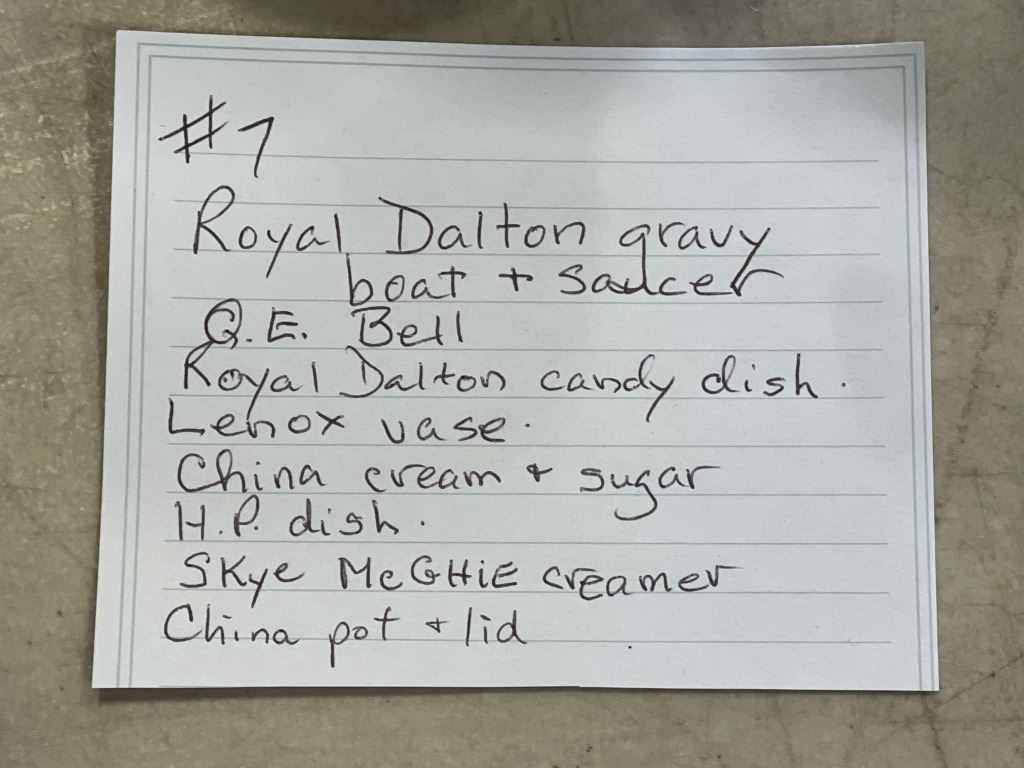 #7
Royal Dalton gravy
boat + saucer
Q.E. Bell
Royal Dalton candy dish.
Lenox vase.
China cream + sugar
H.P. dish.
Skye McGHiE creamer
China pot + lid